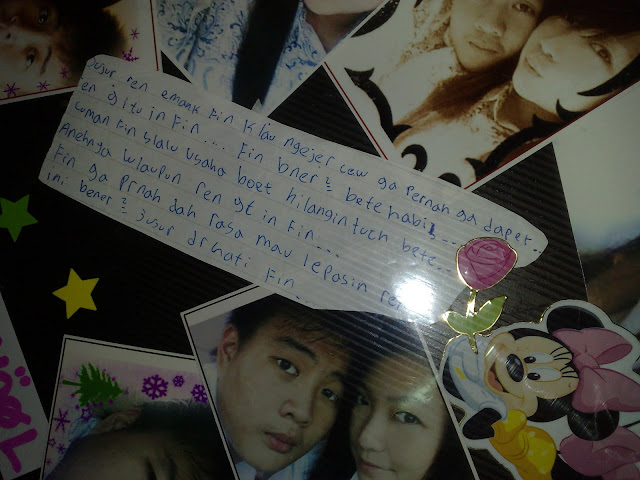 Jujur ren emank Fin klau ngejer cew ga pernah ga dapet..
en gitu in Fin... Fin bner2 bete habis...
cuman Fin slalu usaha boet hilangin tuch bete...
Anehnya wlaupun ren gt in Fin...
Fin ga prnah dah rasa mau leposin ren
ini bener2 jujur dr hati Fin...
Love